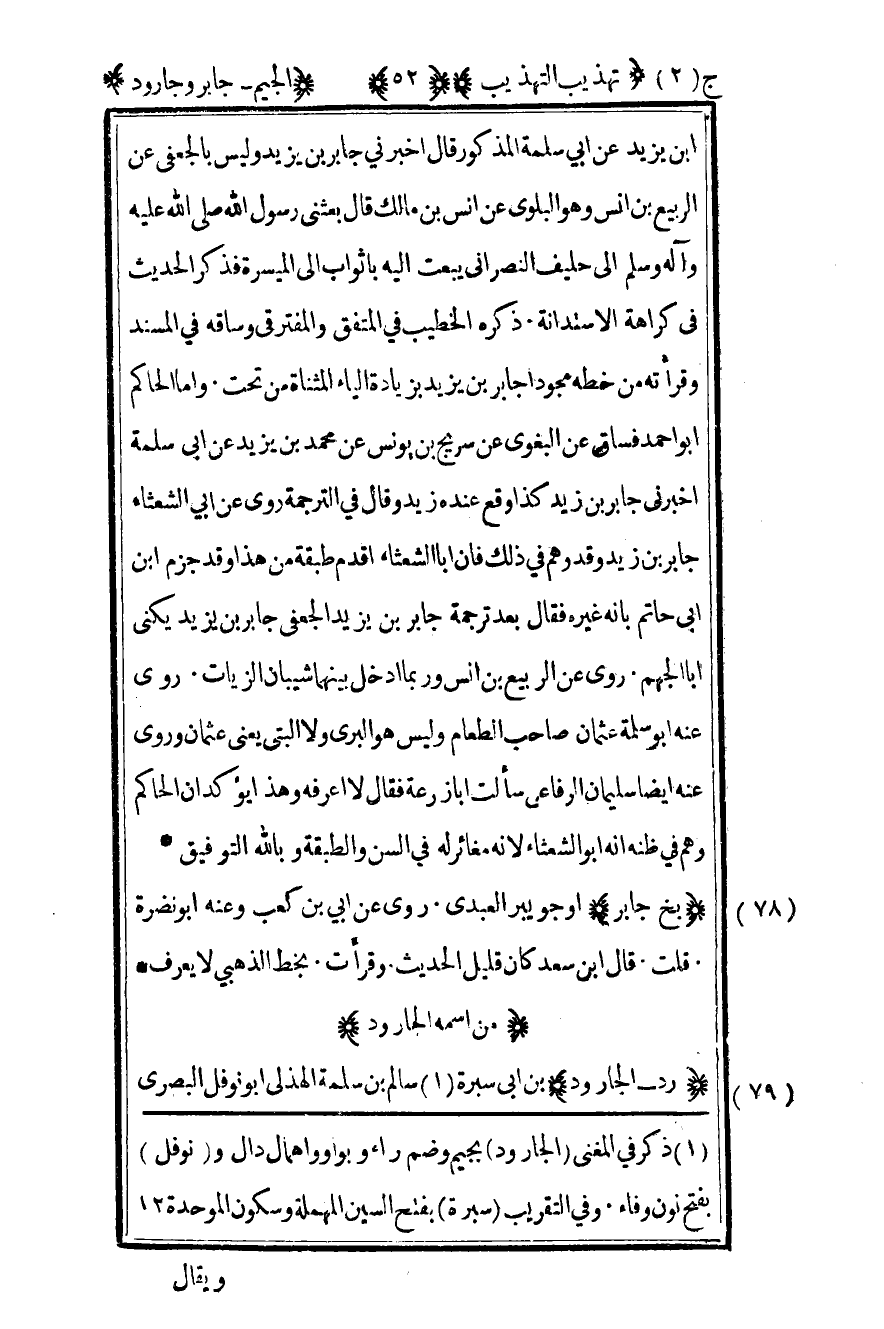 ج (٢) ﴿ تهذيب التهذيب ﴾ ﴿٥٢﴾ ﴿ الجيم ـ جابر وجارود ﴾
ابن يزيد عن ابي سلمة المذكور قال اخبرني جابر بن يزيد وليس بالجعفى عن
الربيع بن انس وهو البلوى عن انس بن مالك قال بعثنى رسول الله صلى الله عليه
وآله وسلم الى حليف النصرانى يبعت اليه باثواب الى الميسرة فذكر الحديث
فى كراهة الاستدانة ٠ ذكره الخطيب في المتفق والمفترق وساقه في المسند
وقرأته من خطه مجودا جابر بن يزيد بزيادة الياء المثناة من تحت ٠ واما الحاكم
ابو احمد فساق عن البغوى عن سريج بن يونس عن محمد بن يزيد عن ابى سلمة
اخبرنى جابر بن زيد كذا وقع عنده زيد وقال في الترجمة روى عن ابي الشعثاء
جابر بن زيد وقد وهم في ذلك فان ابا الشعثاء اقدم طبقة من هذا وقد جزم ابن
ابى حاتم بانه غيره فقال بعد ترجمة جابر بن يزيد الجعفى جابر بن يزيد يكنى
ابا الجهم ٠ روى عن الربيع بن انس وربما ادخل بينهما شيبان الزيات ٠ روى
عنه ابو سلمة عثمان صاحب الطعام وليس هو البرى ولا البتى يعنى عثمان وروى
عنه ايضا سليمان الرفاعى سألت ابا زرعة فقال لا اعرفه وهذا يؤكد ان الحاكم
وهم في ظنه انه ابو الشعثاء لانه مغائر له في السن والطبقة و بالله التوفيق *
(٧٨) ﴿ بخ جابر ﴾ او جويبر العبدى ٠ روى عن ابي بن كعب وعنه ابو نضرة
٠ قلت ٠ قال ابن سعد كان قليل الحديث ٠ وقرأت ٠ بخط الذهبي لا يعرف *
﴿ من اسمه الجارود ﴾
(٧٩) ﴿ رد ـ الجارود ﴾ بن ابى سبرة (١) سالم بن سلمة الهذلى ابو نوفل البصرى
(١) ذكر في المغنى (الجارود) بجيم وضم راء و بواو واهمال دال و (نوفل)
بفتح نون وفاء ٠ وفي التقريب (سبرة) بفتح السين المهملة وسكون الموحدة ١٢
ويقال